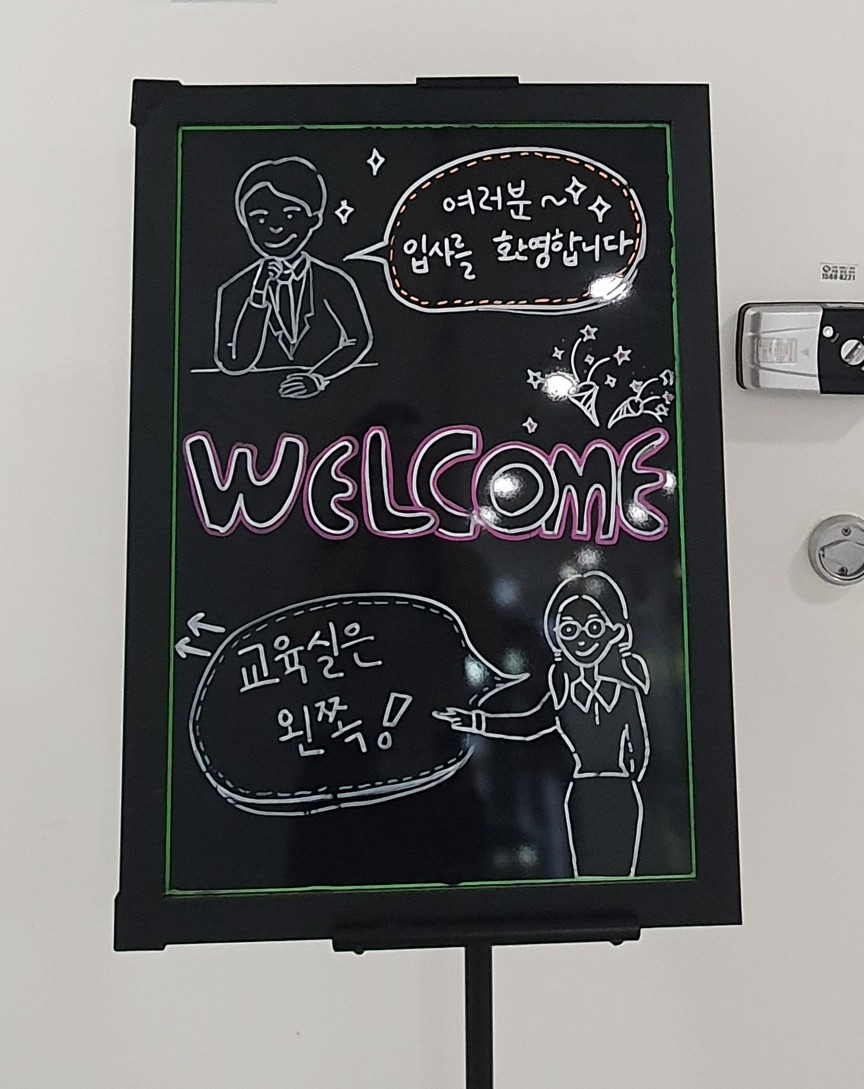 여러분~
입사를 환영합니다
WELCOME
교육실은
왼쪽!